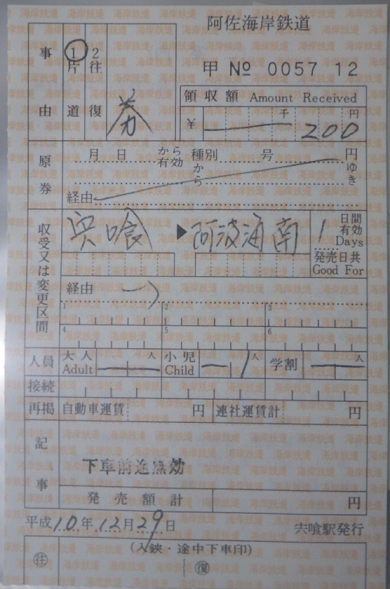 阿佐海岸鉄道
甲 № 0057 12
事由 ①片道 2往復 券
領収額 Amount Received
¥ 千 200 円
原券 月 日から有効 種別 号 円
から ゆき
経由
収受又は変更区間 宍喰 ▶ 阿波海南 1 日間有効 Days
発売日共 Good For
経由
1 2 3
4 5 6
人員 大人 Adult 人 小児 Child 1 人 学割 人
接続
再掲 自動車運賃 円 連社運賃計 円
記事
下車前途無効
発売額計 円
平成10年12月29日 宍喰駅発行
(入鋏・途中下車印)
㊟ 復